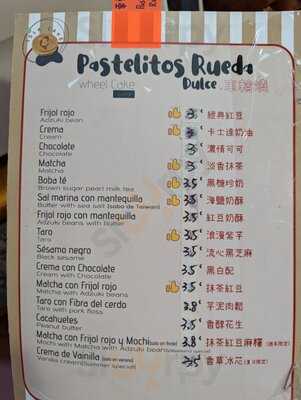 Pastelitos Rueda
wheel Cake
Dulce 車輪燒
Frijol rojo 3€ 經典紅豆
Adzuki bean
Crema 3€ 卡士達奶油
Cream
Chocolate 3€ 濃情可可
Chocolate
Matcha 3€ 淡香抹茶
Matcha
Boba té 3.5€ 黑糖珍奶
Brown sugar pearl milk tea
Sal marina con mantequilla 3.5€ 海鹽奶酥
Butter with sea salt (sabo de Taiwan)
Frijol rojo con mantequilla 3.5€ 紅豆奶酥
Adzuki beans with butter
Taro 3.5€ 浪漫紫芋
Taro
Sésamo negro 3.5€ 流心黑芝麻
Black sesame
Crema con Chocolate 3.5€ 黑白配
Cream with Chocolate
Matcha con Frijol rojo 3.5€ 抹茶紅豆
Matcha with Adzuki beans
Taro con Fibra del cerdo 3.8€ 芋泥肉鬆
Taro with pork floss
Cacahuetes 3.5€ 香醇花生
Peanut butter
Matcha con Frijol rojo y Mochi 3.8€ 抹茶紅豆麻糬
Mochi with Matcha with Adzuki beans
Crema de Vainilla (solo en verano) 香草冰芯
Vanilla cream (Summer special)